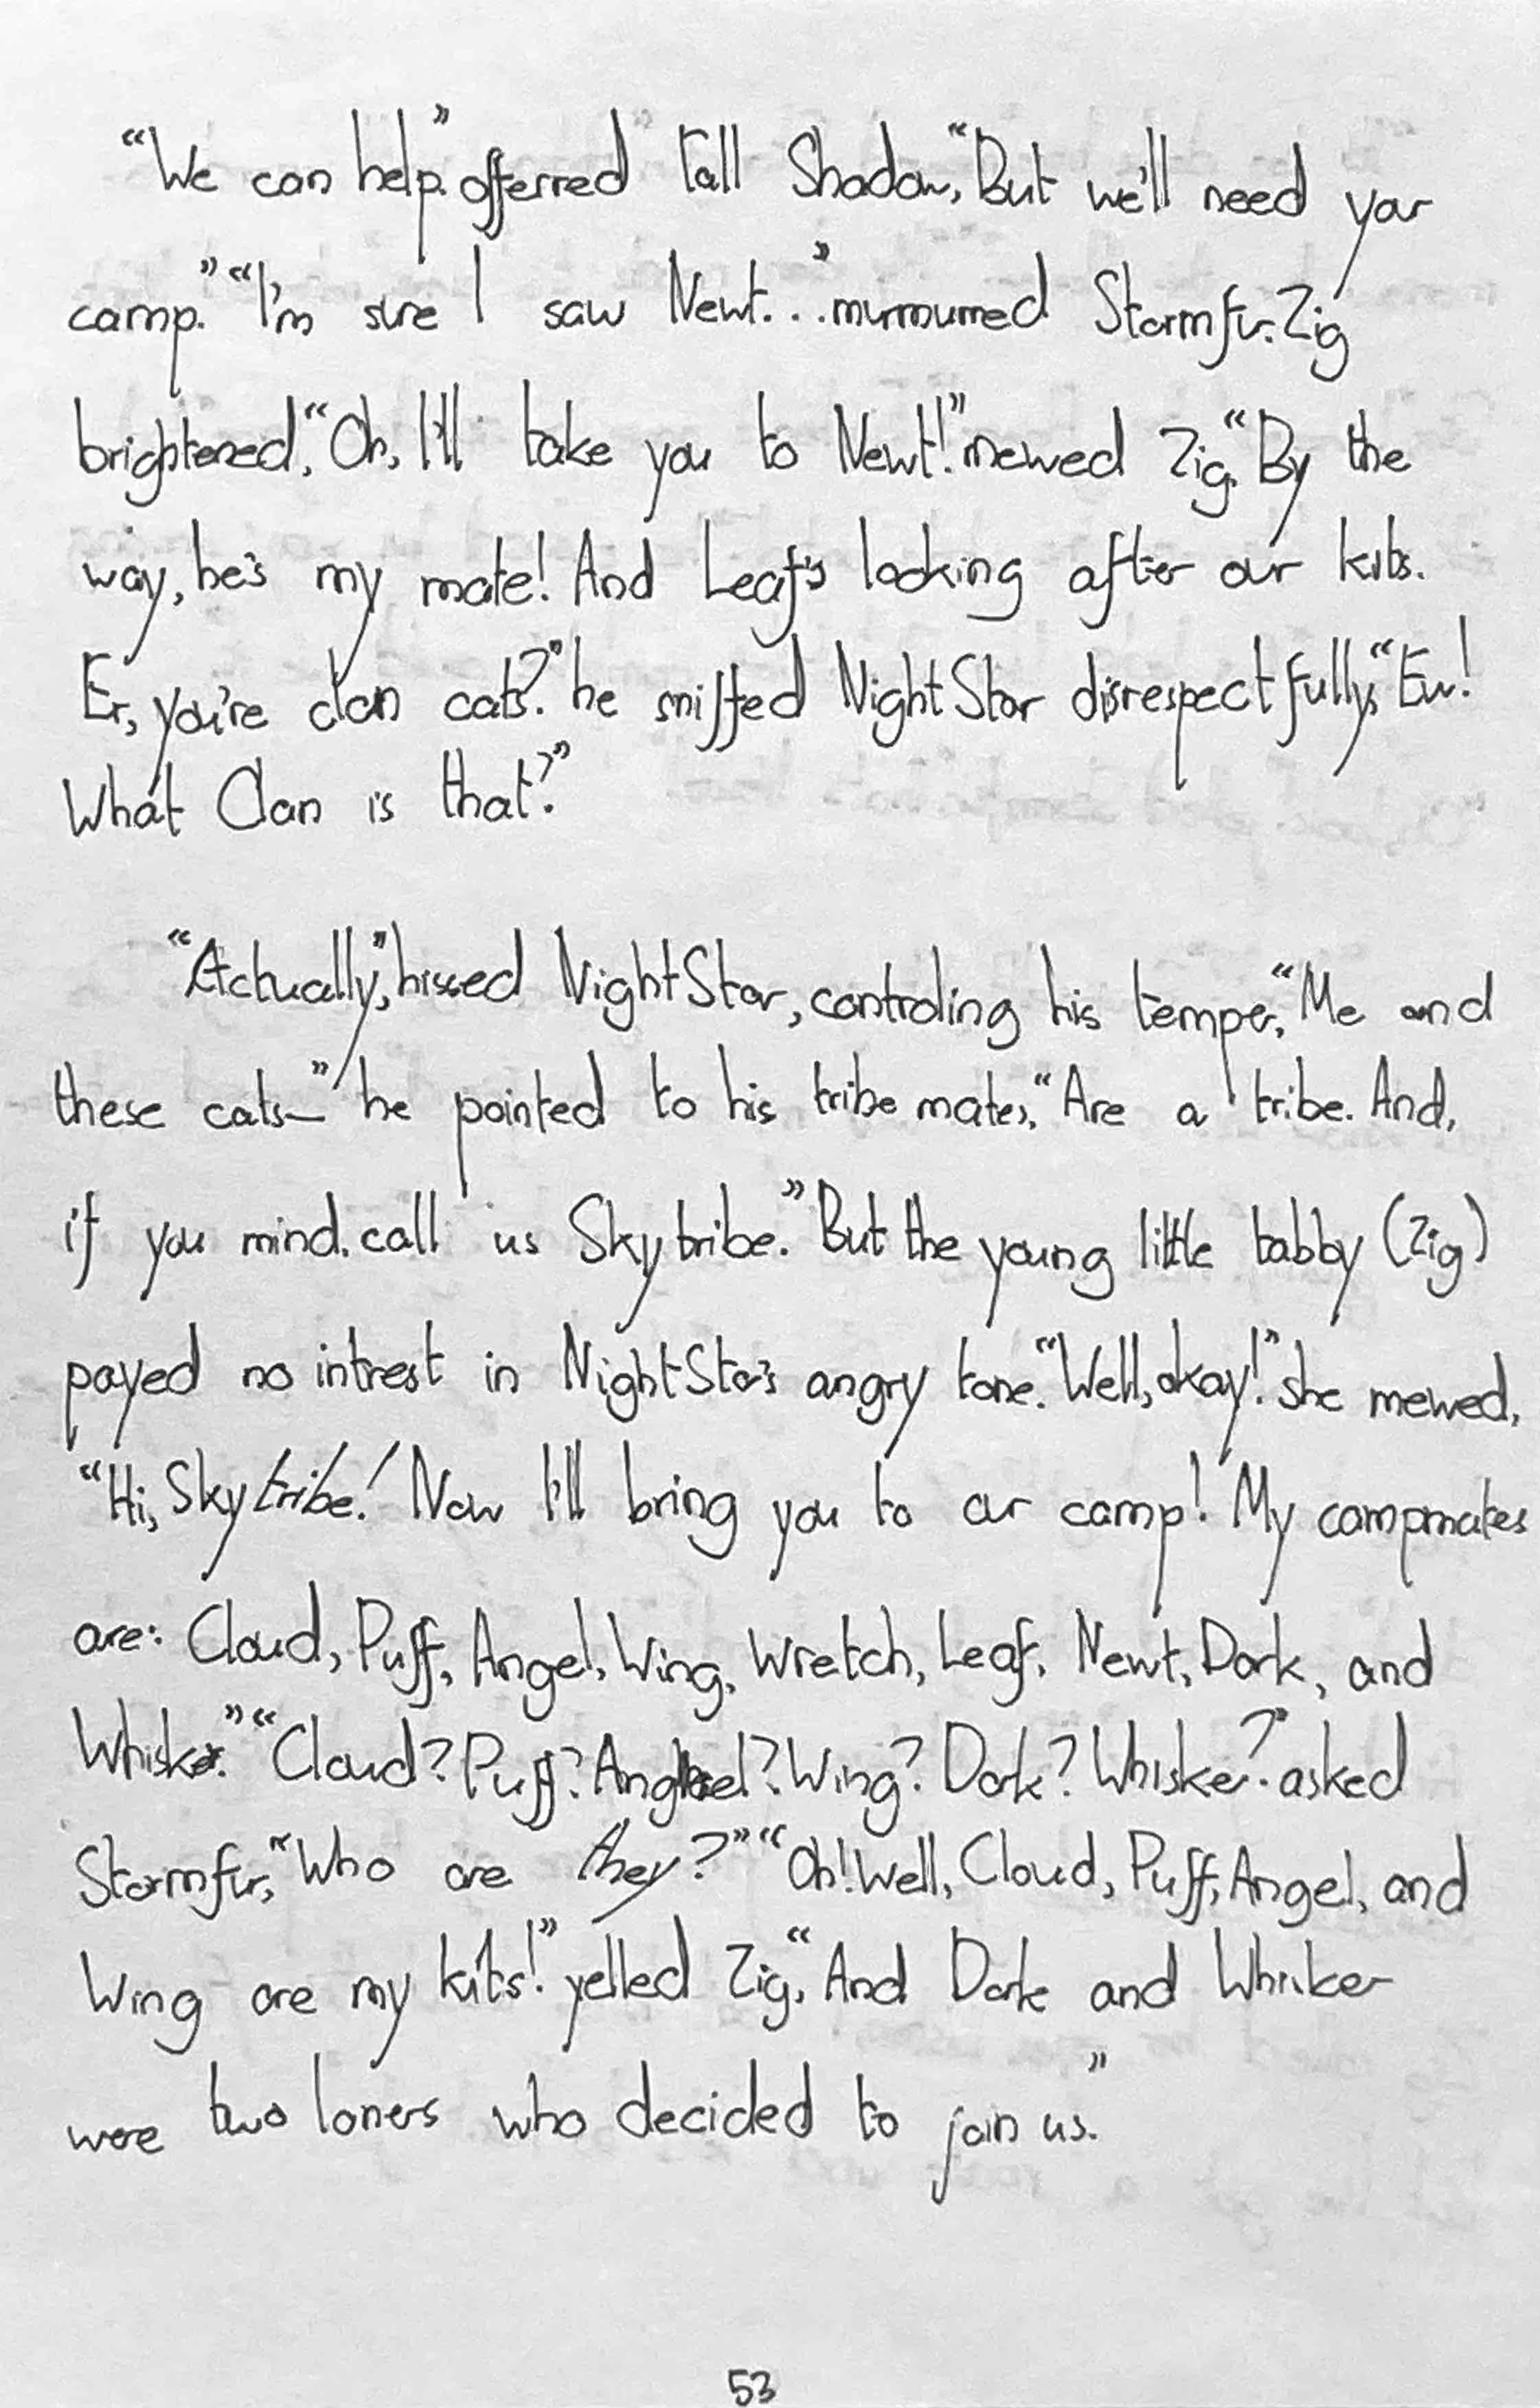 “We can help.” offerred Tall Shadow, “But we'll need your
camp.” “I'm sure I saw Newt...” murmurred Stormfur. Zig
brightened, “Oh, I'll take you to Newt!” mewed Zig. “By the
way, he's my mate! And Leaf's looking after our kits.
Er, you're clan cats?” he sniffed NightStar disrespectfully, “Ew!
What Clan is that?”
“Actually,” hissed NightStar, controling his temper, “Me and
these cats—” he pointed to his tribe mates, “Are a tribe. And,
if you mind, call us Skytribe.” But the young little tabby (Zig)
payed no intrest in NightStar's angry tone. “Well, okay!” she mewed,
“Hi, Skytribe! Now I'll bring you to our camp! My campmates
are: Cloud, Puff, Angel, Wing, Wretch, Leaf, Newt, Dark, and
Whisker.” “Cloud? Puff? Angel? Wing? Dark? Whisker?” asked
Stormfur, “Who are they?” “Oh! Well, Cloud, Puff, Angel, and
Wing are my kits!” yelled Zig, “And Dark and Whisker
were two loners who decided to join us.”
53